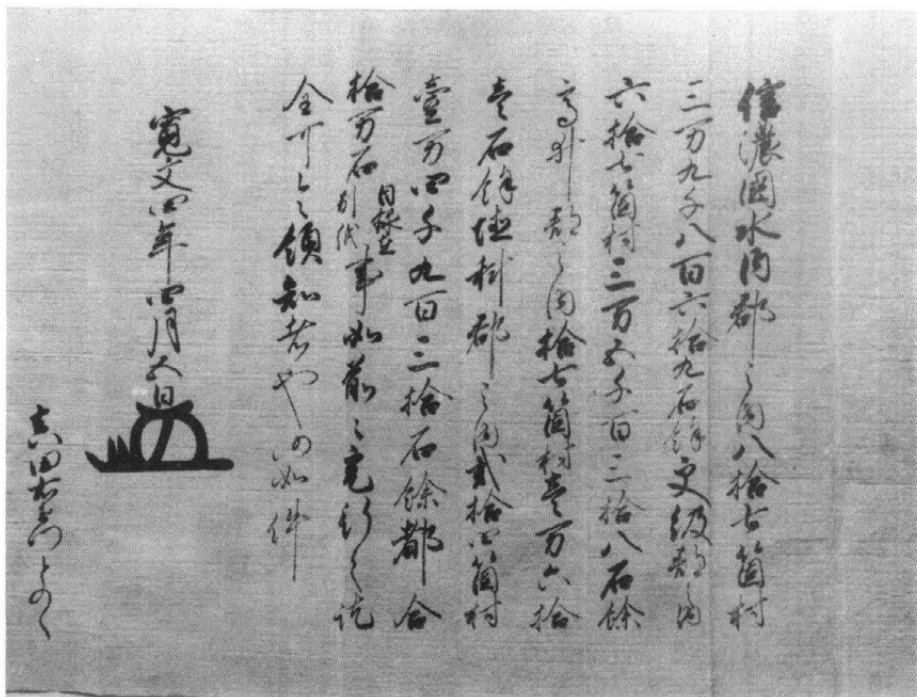 信濃國水内郡之内八拾七箇村
三万九千八百六拾九石餘更級郡之内
六拾七箇村三万五千百三拾八石餘
高井郡之内拾七箇村壹万六拾
壹石餘埴科郡之内貳拾四箇村
壹万四千九百三拾石餘都合
拾万石目録在別紙事如前々宛行之訖
全可令領知者也仍如件
寛文四年四月五日
真田右衛門とのへ